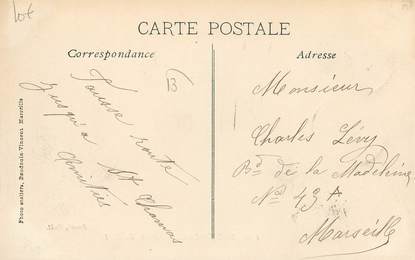 lot
CARTE POSTALE
Correspondance
Adresse
13
jusqu'à
St Chamas
Amitiés
Monsieur
Charles Lévy
Bd de la Madeleine
No 43 A
Marseille
Photo-éditeur, Baudouin-Vincent Marseille